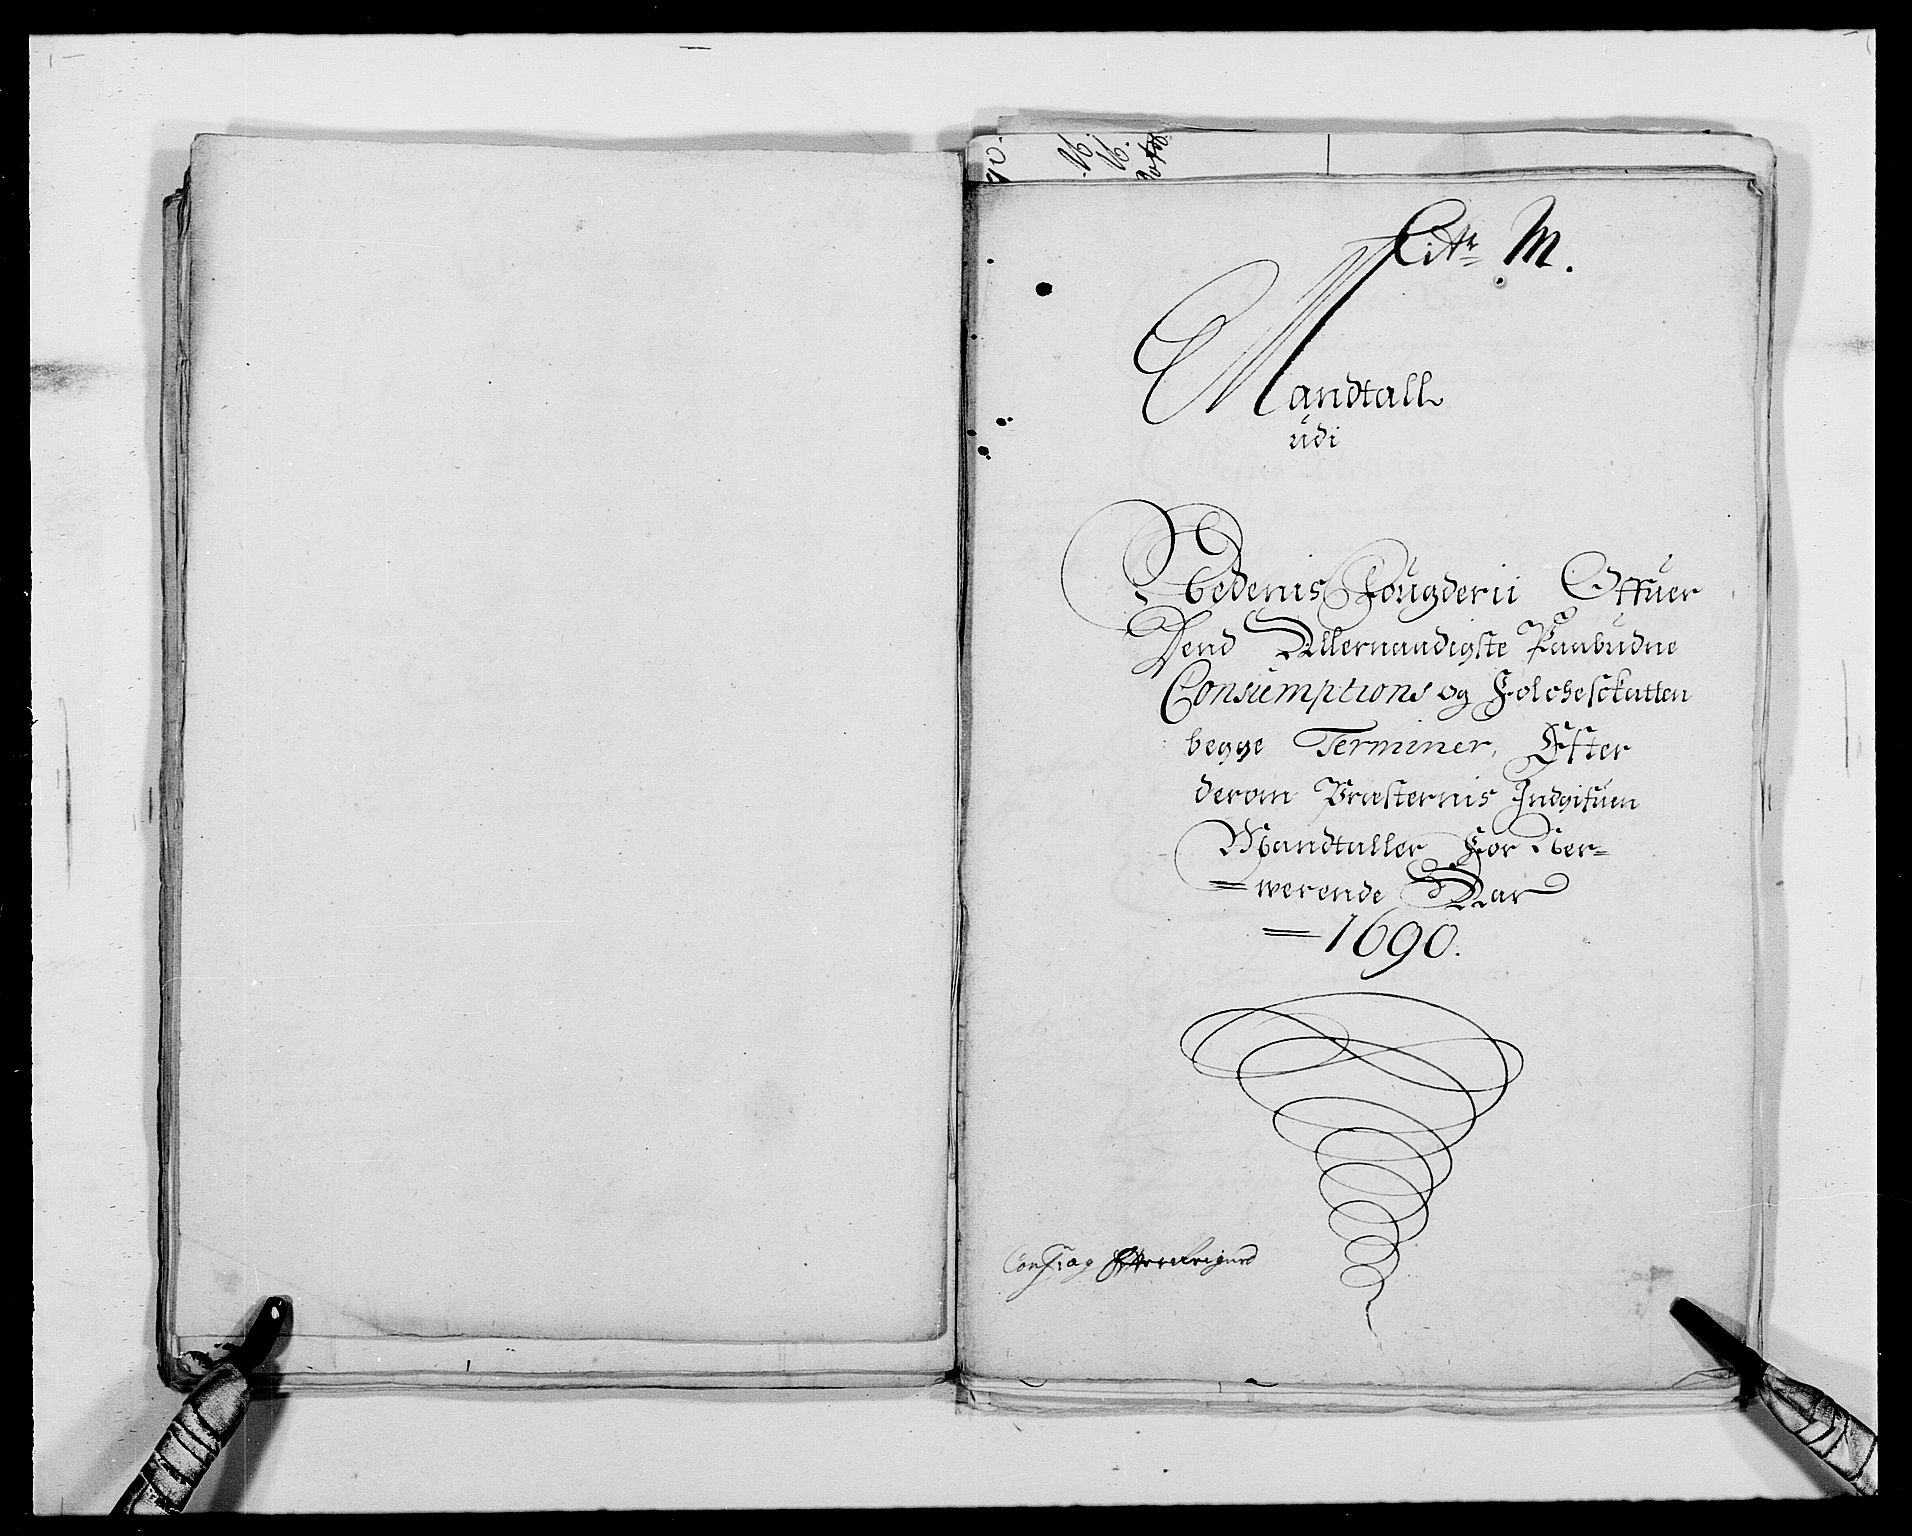 Litr M.
Mandtall
udi
Nedenis Fougderii Offuer
Dend Allernaadigste Paabudne
Consumptions og Folcheskatten
begge Terminer, Efter
derom Præsternis Indgifuen
Mandtaller For Ner=
=werende Aar
=1690.